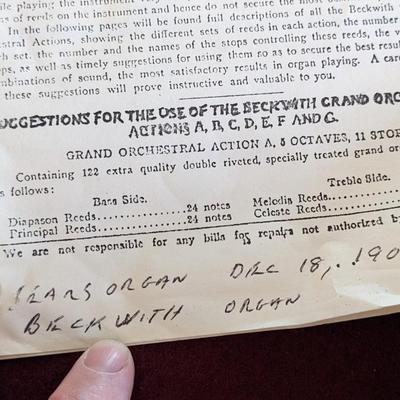 ile playing the instrument
reeds on the instrument and hence do not secure the most
In the following pages will be found full descriptions of all the Beckwith
stral Actions, showing the different sets of reeds in each action, the number
ch set, the number and the names of the stops controlling these reeds, the
ps, as well as timely suggestions for using them so as to secure the best
mbinations of sound, the most satisfactory results in organ playing. A
these suggestions will prove instructive and valuable to you.
UGGESTIONS FOR THE USE OF THE BECKWITH GRAND
ACTIONS A, B, C, D, E, F AND G.
GRAND ORCHESTRAL ACTION A, 5 OCTAVES, 11
Containing 122 extra quality double riveted, specially treated grand
s follows:
Bass Side. Treble Side.
Diapason Reeds........24 notes Melodia Reeds
Principal Reeds........24 notes Celeste Reeds
We are not responsible for any bills for repairs not authorized by
SEARS ORGAN DEC 18, 190
BECKWITH ORGAN